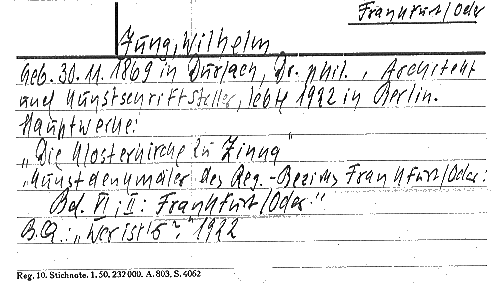 Frankfurt/Oder
Jung, Wilhelm
Geb. 30.11.1869 in Durlach, Dr. phil., Architekt
und Kunstschriftsteller, lebte 1922 in Berlin.
Hauptwerke:
„Die Klosterkirche zu Zinna"
„Kunstdenkmäler des Reg.-Bezirks Frankfurt/Oder:
Bd. VI, II: Frankfurt/Oder."
B.Q.: „Wer ist's?" 1922
Reg. 10. Stichnote. 1. 50. 232000. A. 803. S. 4062